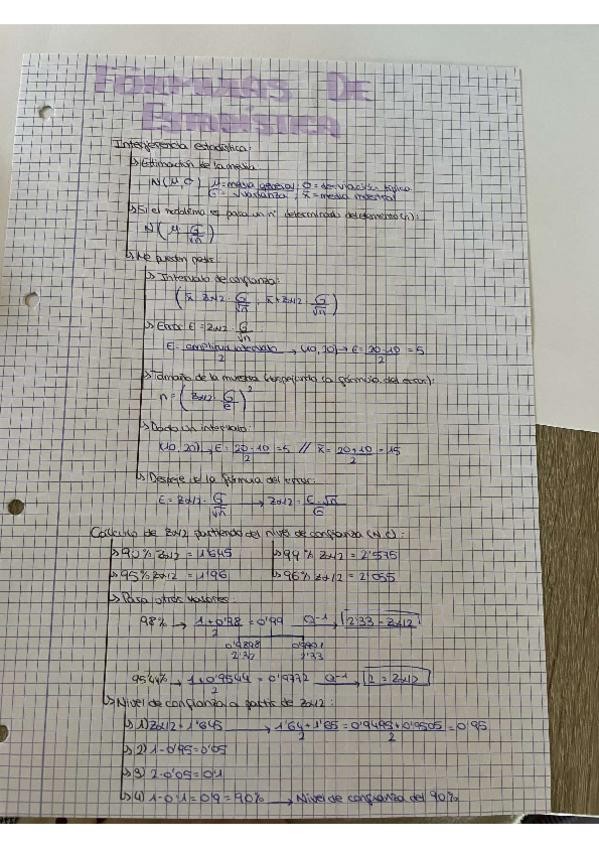 FÓRMULAS DE
ESTADÍSTICA
Interferencia estadística:
↳ Estimación de la media
N(μ, σ) μ = media general; σ = desviación típica
σ = √varianza; x̄ = media muestral
↳ Si el problema es para un nº determinado de elementos (n):
N(μ, σ/√n)
↳ Me pueden pedir:
↳ Intervalo de confianza:
(x̄ - Zα/2 · σ/√n ; x̄ + Zα/2 · σ/√n)
↳ Error E = Zα/2 · σ/√n
E = amplitud intervalo/2 → (10, 20) → E = 20-10/2 = 5
↳ Tamaño de la muestra (conjunto a fórmula del error):
n = (Zα/2 · σ/e)²
↳ Dado un intervalo:
(10, 20) → E = 20-10/2 = 5 // x̄ = 20+10/2 = 15
↳ Despeje de la fórmula del error:
E = Zα/2 · σ/√n → Zα/2 = E·√n/σ
Cálculo de Zα/2 partiendo del nivel de confianza (N.C):
↳ 90% Zα/2 = 1'645 ↳ 99% Zα/2 = 2'575
↳ 95% Zα/2 = 1'96 ↳ 96% Zα/2 = 2'055
↳ Para otros valores:
98% → 1+0'98/2 = 0'99 → 2'33 = Zα/2
0'9898 0'9901
2'32 2'33
95'44% → 1+0'9544/2 = 0'9772 → 2 = Zα/2
↳ Nivel de confianza a partir de Zα/2:
↳ 1) Zα/2 = 1'645 → 1'64+1'65/2 = 0'9495+0'9505/2 = 0'95
↳ 2) 1-0'95 = 0'05
↳ 3) 2·0'05 = 0'1
↳ 4) 1-0'1 = 0'9 = 90% → Nivel de confianza del 90%